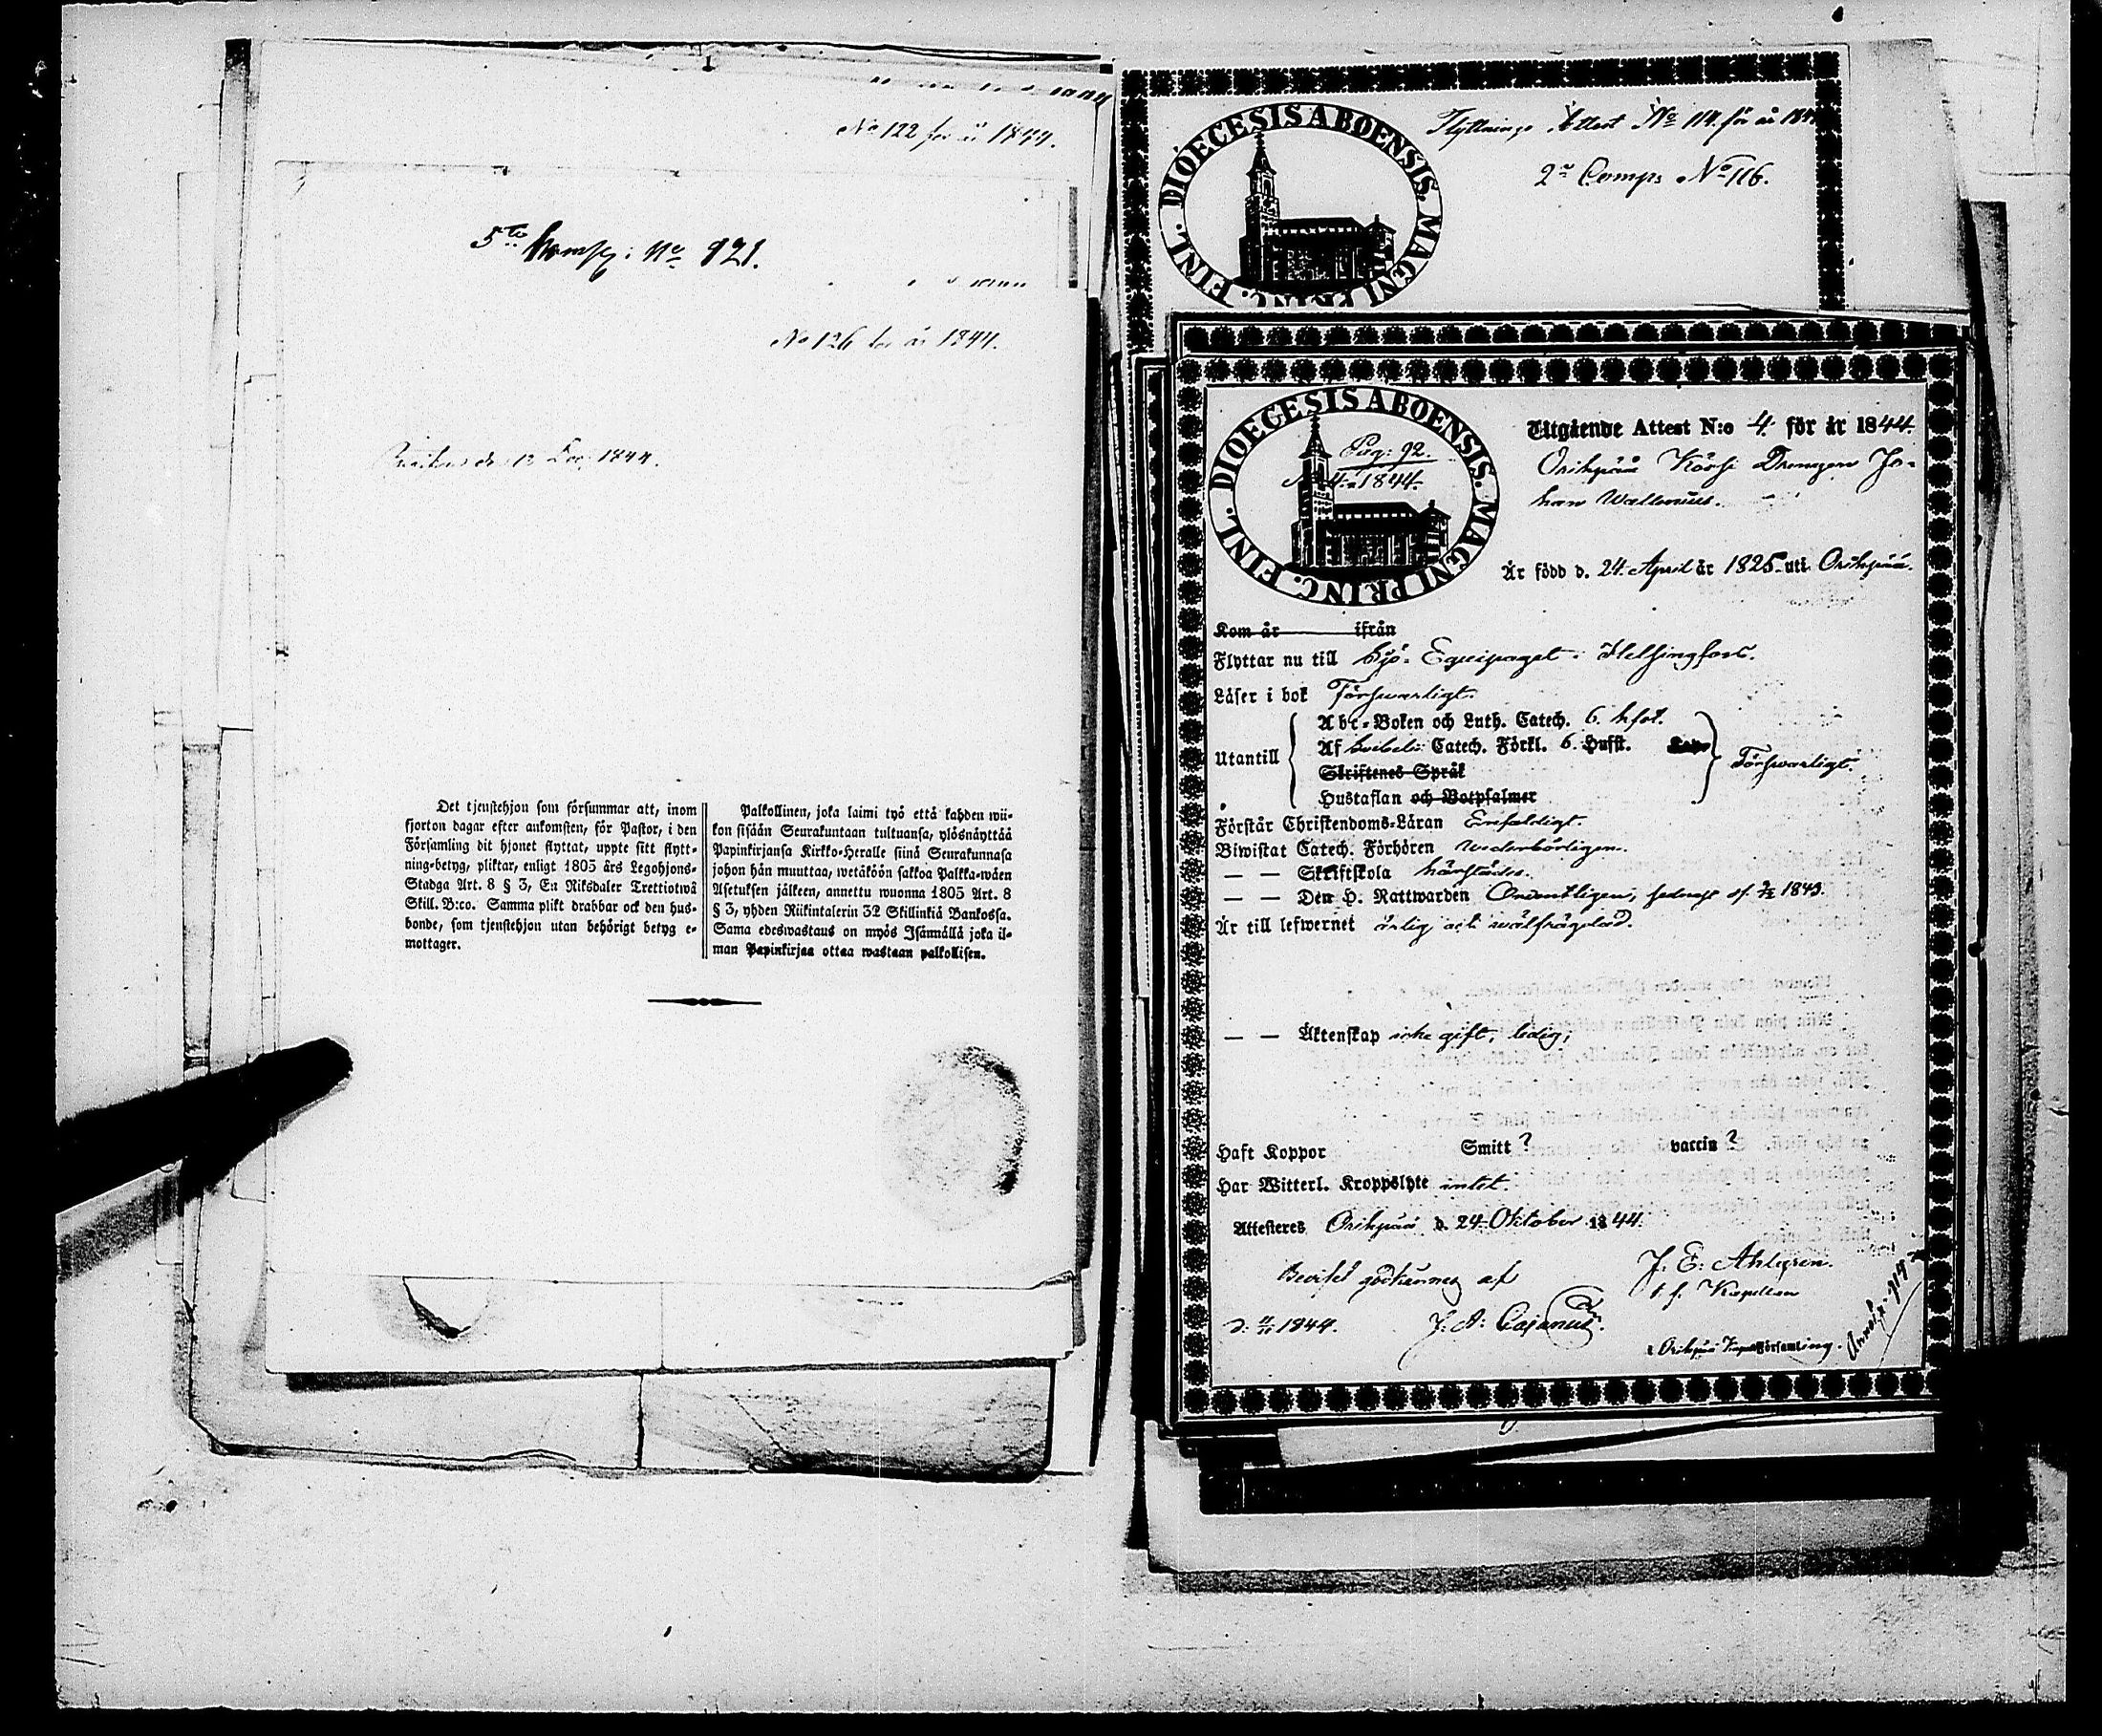 No 122 för år 1844.
5te Komp: No 121.
No 126 för år 1844.
d. 12 Dec. 1844.
Det tjenstehjon som försummar att, inom
fjorton dagar efter ankomsten, för Pastor, i den
Församling dit hjonet flyttat, uppte sitt flytt-
ning-betyg, pliktar, enligt 1805 års Legohjons-
Stadga Art. 8 § 3, En Riksdaler Trettiotwå
Skill. B:co. Samma plikt drabbar ock den hus-
bonde, som tjenstehjon utan behörigt betyg e-
mottager.
Palkollinen, joka laimi työ että kahden wii-
kon sisään Seurakuntaan tultuansa, ylösnäyttää
Papinkirjansa Kirkko-Heralle siinä Seurakunnasa
johon hän muuttaa, wetäköön sakkoa Palkka-wäen
Asetuksen jälkeen, annettu wuonna 1805 Art. 8
§ 3, yhden Riikintalerin 32 Skillinkiä Bankossa.
Sama edeswastaus on myös Isännällä joka il-
man Papinkirjaa ottaa wastaan palkollisen.
DIOECESIS ABOENSIS. MAGNI PRINC. FINL.
Flyttnings Attest No 114. för år 184
2a Comps No 116.
DIOECESIS ABOENSIS. MAGNI PRINC. FINL.
Pag: 92.
N 4. 1844.
Utgående Attest N:o 4. för år 1844.
Orihpää Körsi Drengen Jo-
han Wallenius.
Är född d. 24. April år 1825. uti Orihpää.
Kom år ifrån
Flyttar nu till Sjö-Equipaget i Helsingfors.
Läser i bok Förswarligt.
Utantill
Abc-Boken och Luth. Catech. 6. hfst.
Af Svebelii Catech. Förkl. 6. Hufst.
Skriftenes Språk
Hustaflan och Botpsalmer
Förswarligt.
Förstår Christendoms-Läran Enfaldigt.
Biwistat Catech. Förhören wederbörligen.
— — Skriftskola härstädes.
— — Den H. Nattwarden Ordentligen, sednast d. 3/12 1843.
Är till lefwernet ärlig och wälfrägdad.
— — Äktenskap icke gift, ledig;
Haft Koppor Smitt? vaccin?
Har Witterl. Kroppslyte intet.
Attesteres Orihpää d. 24. Oktober 1844.
J. E. Ahlgren.
t. f. Kapellan
i Orihpää Kapellförsamling.
Beviset godkännes af
1844. J. A: Cajanus.